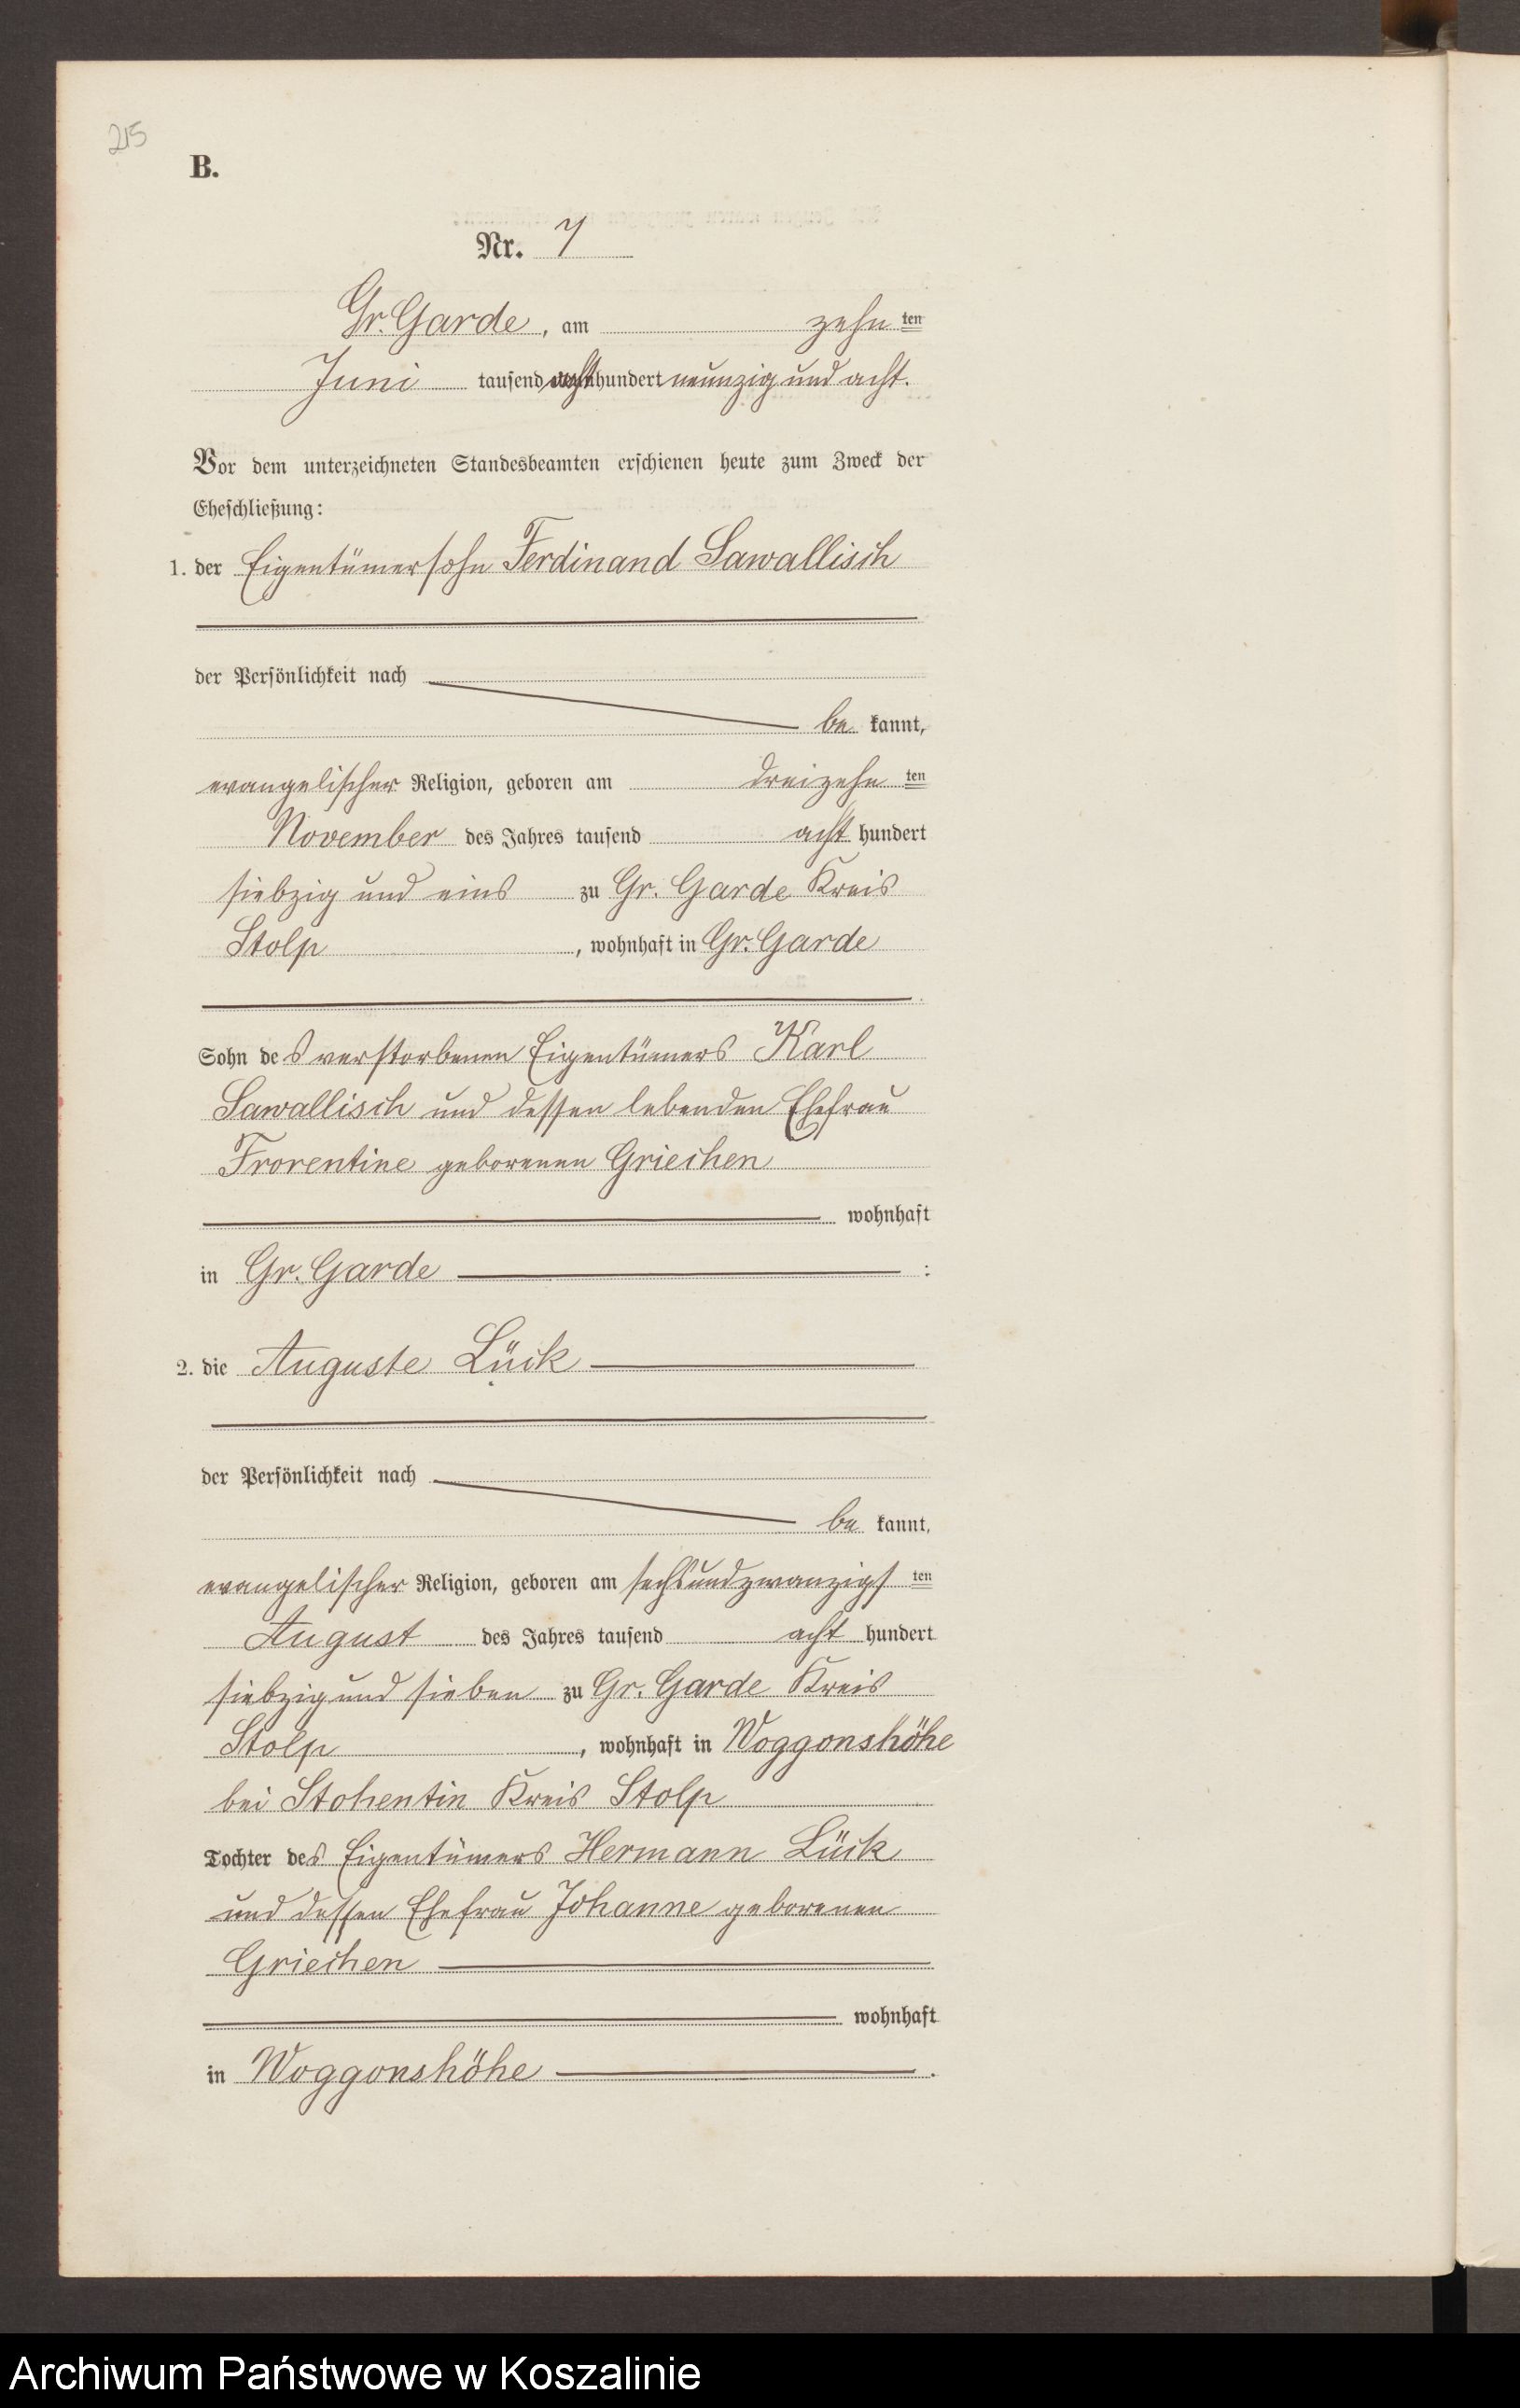 215
B.
Nr. 7
Gr. Garde, am zehn ten
Juni tausend acht hundert neunzig und acht.
Vor dem unterzeichneten Standesbeamten erschienen heute zum Zweck der
Eheschließung:
1. der Eigentümersohn Ferdinand Sawallisch
der Persönlichkeit nach
be kannt,
evangelischer Religion, geboren am dreizehn ten
November des Jahres tausend acht hundert
siebzig und eins zu Gr. Garde Kreis
Stolp, wohnhaft in Gr. Garde
Sohn des verstorbenen Eigentümers Karl
Sawallisch und dessen lebenden Ehefrau
Frorentine geborenen Griechen
wohnhaft
in Gr. Garde :
2. die Auguste Lück
der Persönlichkeit nach
be kannt,
evangelischer Religion, geboren am sechsundzwanzigs ten
August des Jahres tausend acht hundert
siebzig und sieben zu Gr. Garde Kreis
Stolp, wohnhaft in Woggonshöhe
bei Stohentin Kreis Stolp
Tochter des Eigentümers Hermann Lück
und dessen Ehefrau Johanne geborenen
Griechen
wohnhaft
in Woggonshöhe .
Archiwum Państwowe w Koszalinie